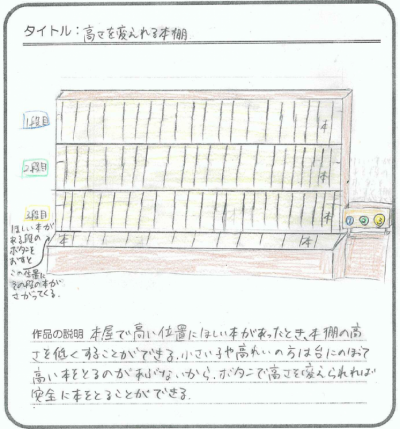 タイトル：高さを変えれる本棚
1段目
本
2段目
本
3段目
本
① ② ③
ほしい本が
ある段の
ボタンを
おすと
この位置に
その段の本が
さがってくる.
本
本
作品の説明 本屋で高い位置にほしい本があったとき、本棚の高
さを低くすることができる.小さい子や高れいの方は台にのぼって
高い本をとるのがあぶないから、ボタンで高さを変えられれば
安全に本をとることができる.